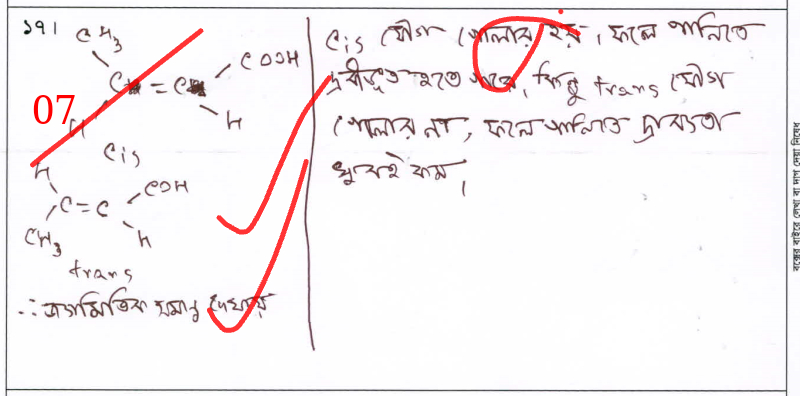 ১৭।
CH3
COOH
C = C
07
H
H
Cis
H
COH
C=C
CH3
H
trans
∴ জ্যামিতিক সমাণু দেখায়
Cis যৌগ পোলার হয়, ফলে পানিতে
দ্রবীভূত হতে পারে, কিন্তু trans যৌগ
পোলার না, ফলে পানিতে দ্রাব্যতা
খুবই কম।
বক্সের বাইরে লেখা বা দাগ দেয়া নিষেধ